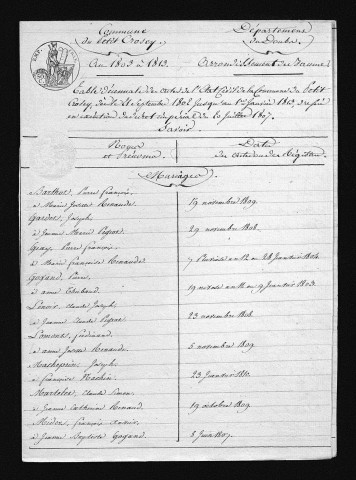 Commune
du Petit Crosey
Département
du Doubs
An 1803 à 1813
Arrondissement de Baume
Table Décennale des actes de l'Etat Civil de la Commune de Petit
Crosey, depuis le 21 Septembre 1802 jusqu'au 1er Janvier 1813, dressée
en exécution du décret impérial du 20 Juillet 1807.
Savoir
Noms
et Prénoms
Date
des actes ou des Régistres
Mariages
Barthot, Pierre François
à Marie Josephe Renaude 19 novembre 1809
Gardot, Joseph
à Jeanne Marie 29 novembre 1808
Pierre François
à Marie Françoise Renaude 7 Pluviose an 12 ou 28 Janvier 1804
Gogand, Pierre
à anne Thiebaud 19 nivose an 11 ou 9 Janvier 1803
Lenoir, Claude Joseph
à Jeanne Claude 23 novembre 1808
Ferdinand
à anne Josephe Renaude 5 novembre 1809
Joseph
à françoise 23 Janvier 1810
Claude Simon
à Jeanne Catherine Renaud 19 octobre 1809
François
à Jeanne Baptiste Gogand 8 Juin 1807